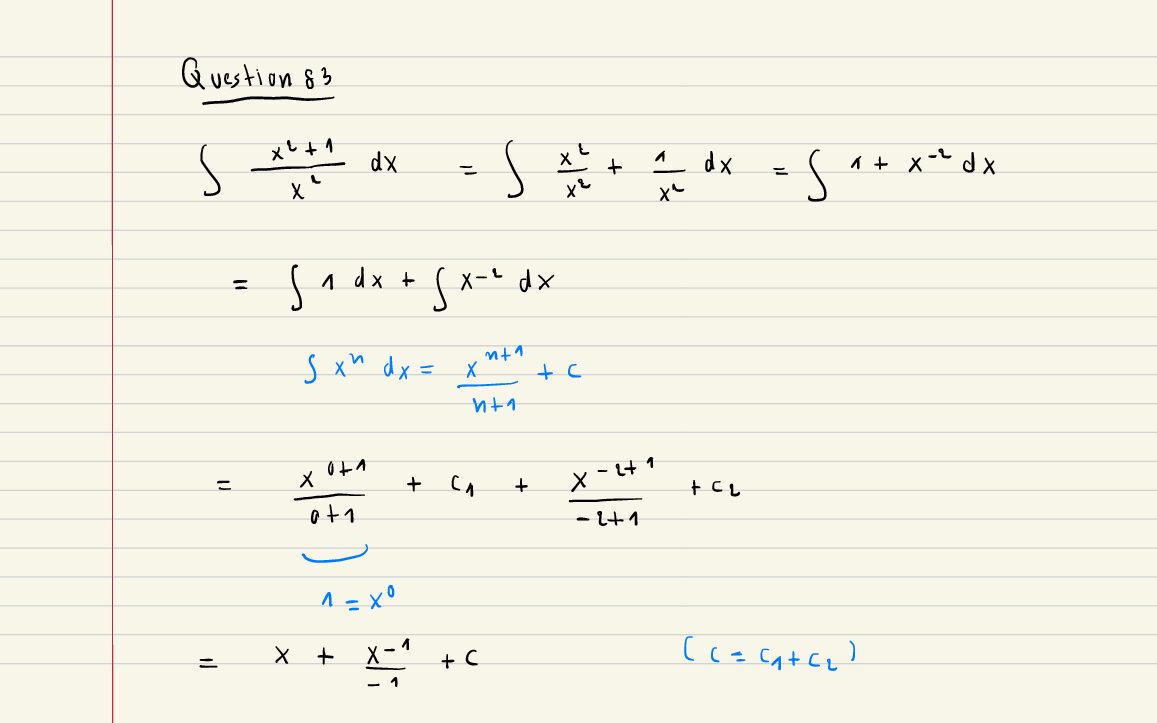 Question 83
∫ (x² + 1)/x² dx = ∫ x²/x² + 1/x² dx = ∫ 1 + x⁻² dx
= ∫ 1 dx + ∫ x⁻² dx
∫ xⁿ dx = xⁿ⁺¹/(n+1) + c
= x⁰⁺¹/(0+1) + c₁ + x⁻²⁺¹/(-2+1) + c₂
1 = x⁰
= x + x⁻¹/-1 + c (c = c₁ + c₂)